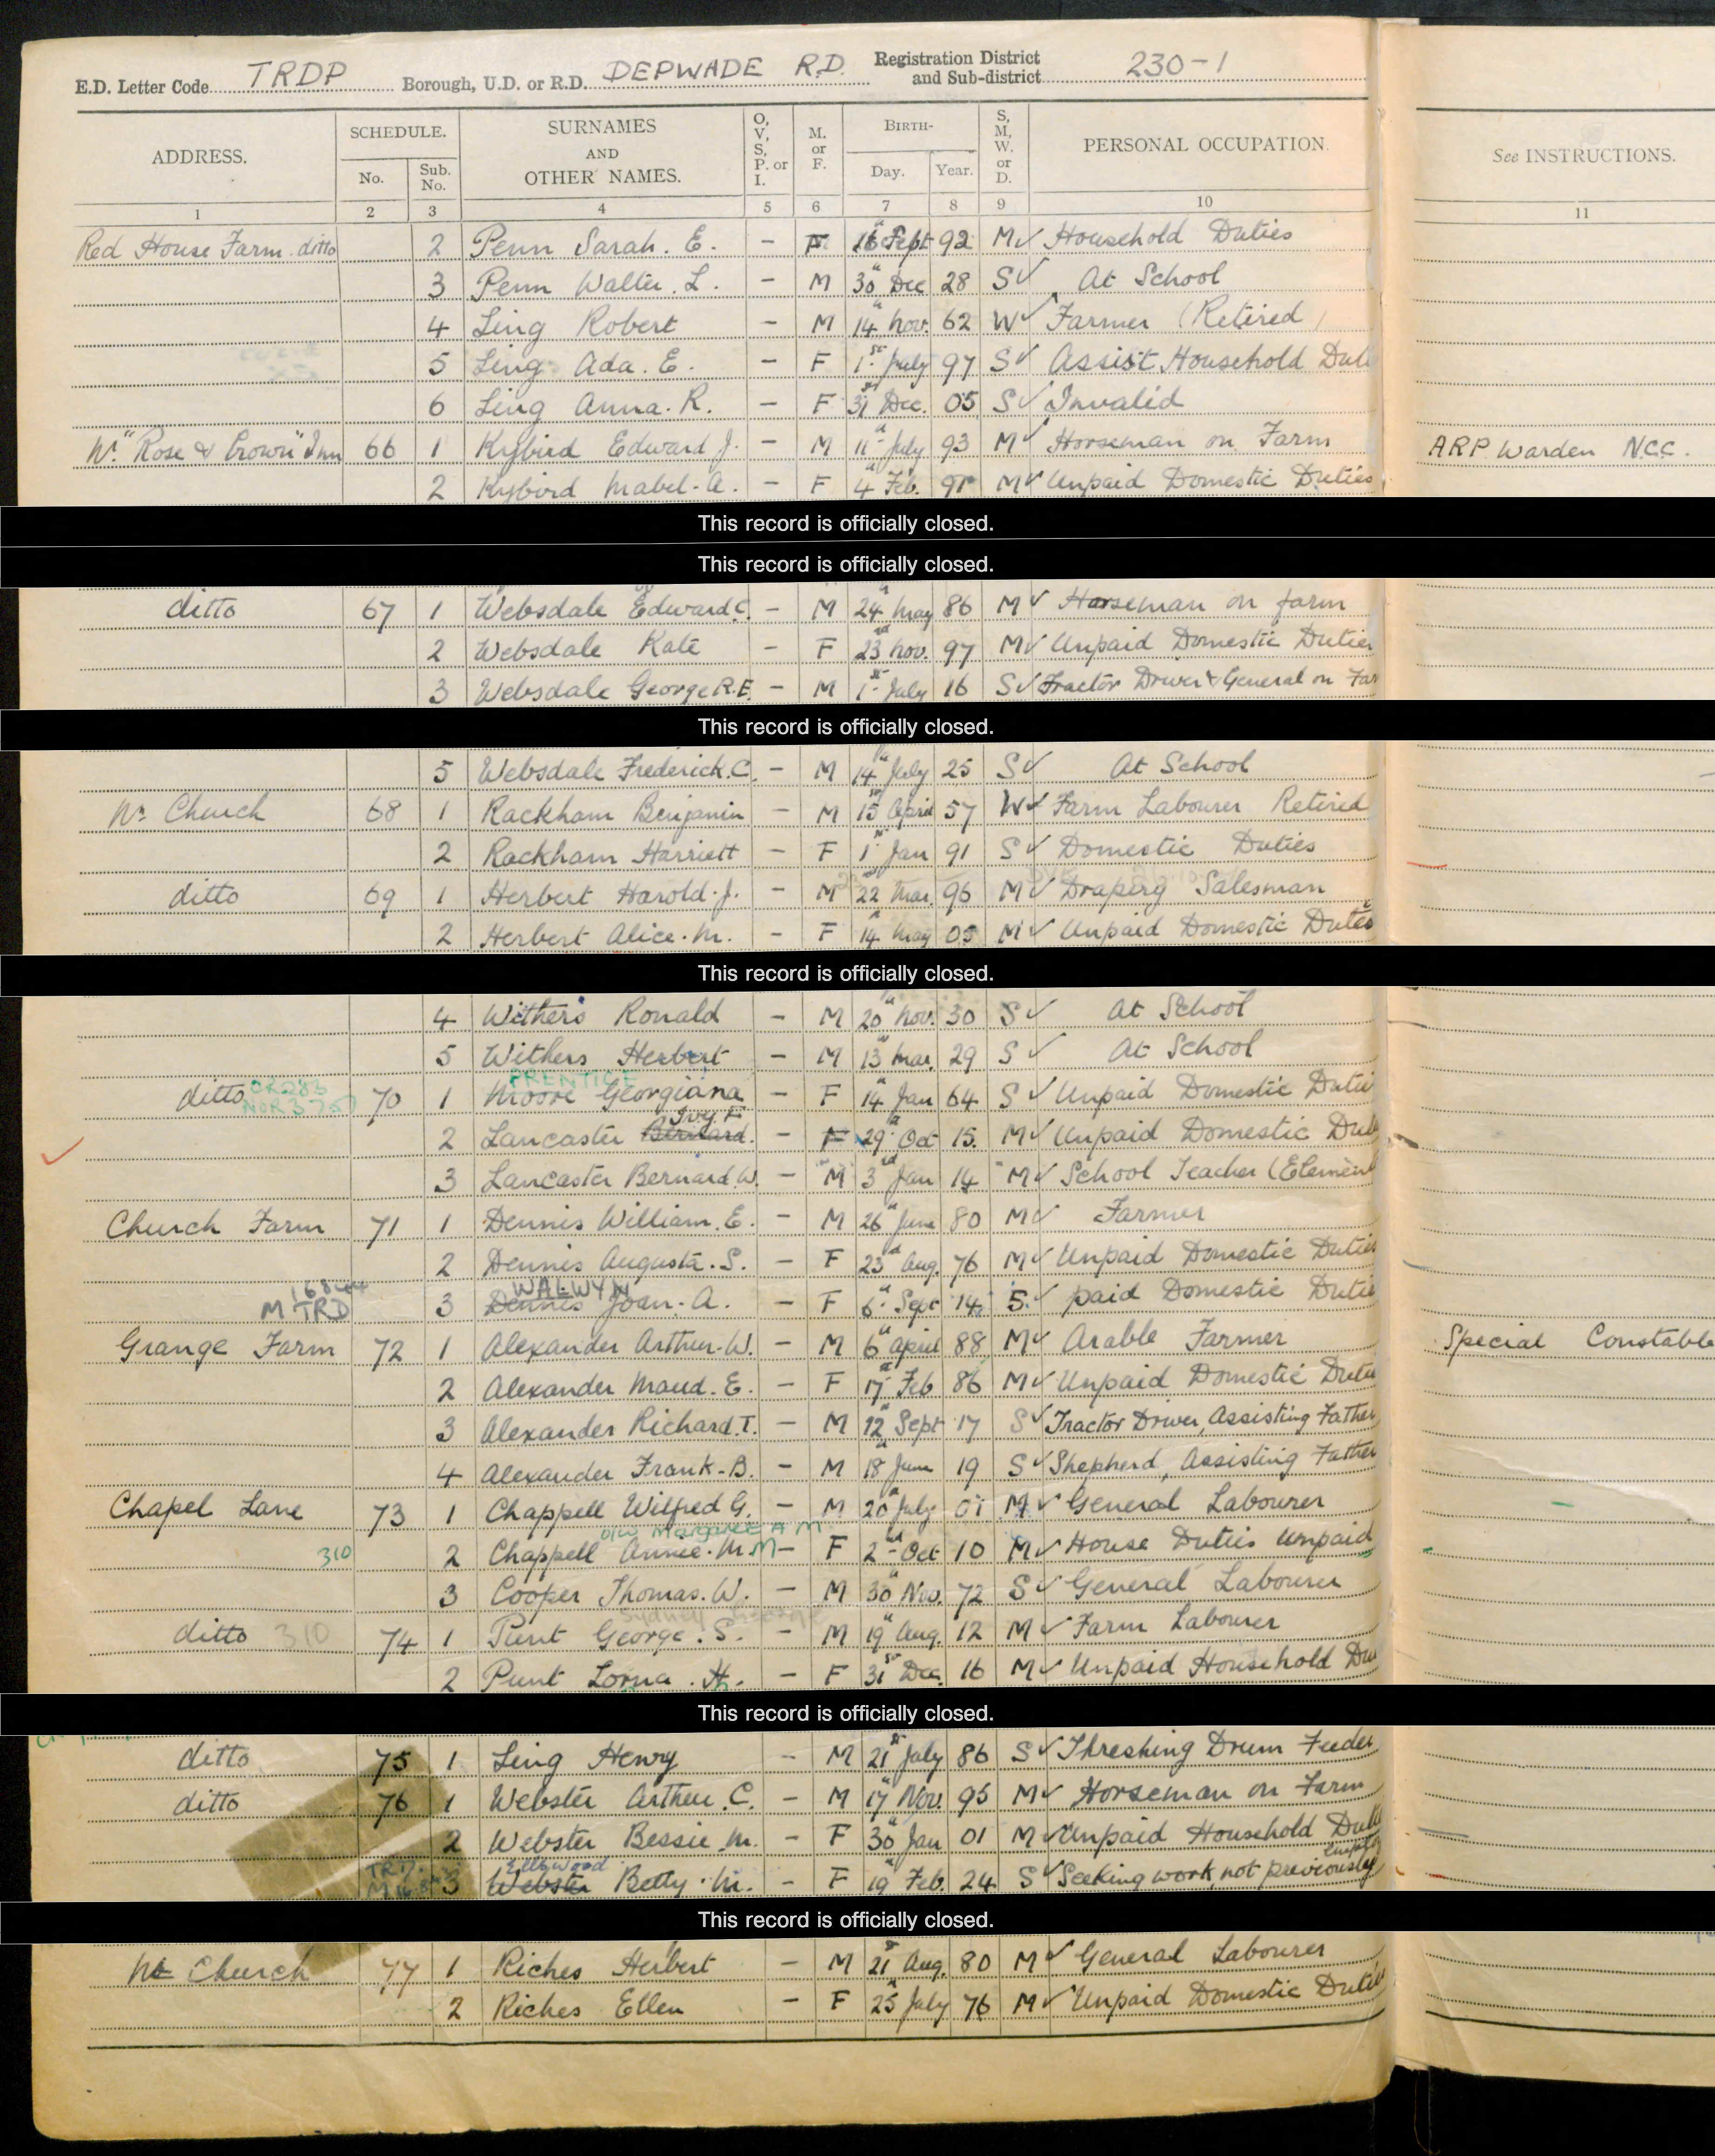 E.D. Letter Code TRDP Borough, U.D. or R.D. DEPWADE R.D. Registration District and Sub-district 230-1
ADDRESS. SCHEDULE. No. Sub. No. SURNAMES AND OTHER NAMES. O, V, S, P. or I. M. or F. BIRTH- Day. Year. S, M, W. or D. PERSONAL OCCUPATION. See INSTRUCTIONS.
1 2 3 4 5 6 7 8 9 10 11
Red House Farm ditto 2 Penn Sarah. E. - F 16 Sept 92 M Household Duties
3 Penn Walter. L. - M 30 Dec 28 S At School
4 Ling Robert - M 14 Nov. 62 W Farmer (Retired)
5 Ling Ada. E. - F 1st July 97 S Assist Household Duti
6 Ling Anna. R. - F 31 Dec. 05 S Invalid
Nr. "Rose & Crown" Inn 66 1 Kybird Edward J. - M 11 July 93 M Horseman on Farm ARP Warden N.C.C.
2 Kybird Mabel. A. - F 4 Feb. M Unpaid Domestic Duties
This record is officially closed.
This record is officially closed.
ditto 67 1 Websdale Edward C. - M 24 May 86 M Horseman on farm
2 Websdale Kate - F 23 Nov. 97 M Unpaid Domestic Duties
3 Websdale George R.E. - M 1st July 16 S Tractor Driver & General on Far
This record is officially closed.
5 Websdale Frederick. C. - M 14 July 25 S At School
Nr Church 68 1 Rackham Benjamin - M 15 April 57 W Farm Labourer Retired
2 Rackham Harriett - F 1 Jan 91 S Domestic Duties
ditto 69 1 Herbert Harold. J. - M 22 Mar. 96 M Drapery Salesman
2 Herbert Alice. M. - F 14 May 05 M Unpaid Domestic Duties
This record is officially closed.
4 Withers Ronald - M 20 Nov. 30 S At School
5 Withers Herbert - M 13 Mar. 29 S At School
PRENTICE
ditto 70 1 Moore Georgiana - F 14 Jan 64 S Unpaid Domestic Dutie
Ivy F.
2 Lancaster Bernard. - F 29 Oct 15. M Unpaid Domestic Duti
3 Lancaster Bernard. W. - M 3rd Jan 14 M School Teacher (Element
Church Farm 71 1 Dennis William. E. - M 26 June 80 M Farmer
2 Dennis Augusta. S. - F 23 Aug. 76 M Unpaid Domestic Duties
WALWYN
M TRD 3 Dennis Joan. A. - F 6 Sept 14 S. paid Domestic Dutie
Grange Farm 72 1 Alexander Arthur. W. - M 6 April 88 M Arable Farmer Special Constable
2 Alexander Maud. E. - F 17 Feb 86 M Unpaid Domestic Dutie
3 Alexander Richard. T. - M 12 Sept 17 S Tractor Driver, Assisting Father
4 Alexander Frank. B. - M 18 June 19 S Shepherd, Assisting Father
Chapel Lane 73 1 Chappell Wilfred G. - M 20 July 07 M General Labourer
o/w Margaret A M
310 2 Chappell Annie. M. M - F 2nd Oct 10 M House Duties Unpaid
3 Cooper Thomas. W. - M 30 Nov. 72 S General Labourer
Sydney George
ditto 310 74 1 Punt George. S. - M 19 Aug. 12 M Farm Labourer
2 Punt Lorna. H. - F 31st Dec. 16 M Unpaid Household Du
This record is officially closed.
ditto 75 1 Ling Henry - M 21st July 86 S Threshing Drum Feeder
ditto 76 1 Webster Arthur. C. - M 17 Nov. 95 M Horseman on Farm
2 Webster Bessie. M. - F 30 Jan 01 M Unpaid Household Duti
Ellwood
3 Webster Betty. M. - F 19 Feb. 24 S Seeking work, not previously
This record is officially closed.
Nr Church 77 1 Riches Herbert - M 21st Aug. 80 M General Labourer
2 Riches Ellen - F 25 July 76 M Unpaid Domestic Duties